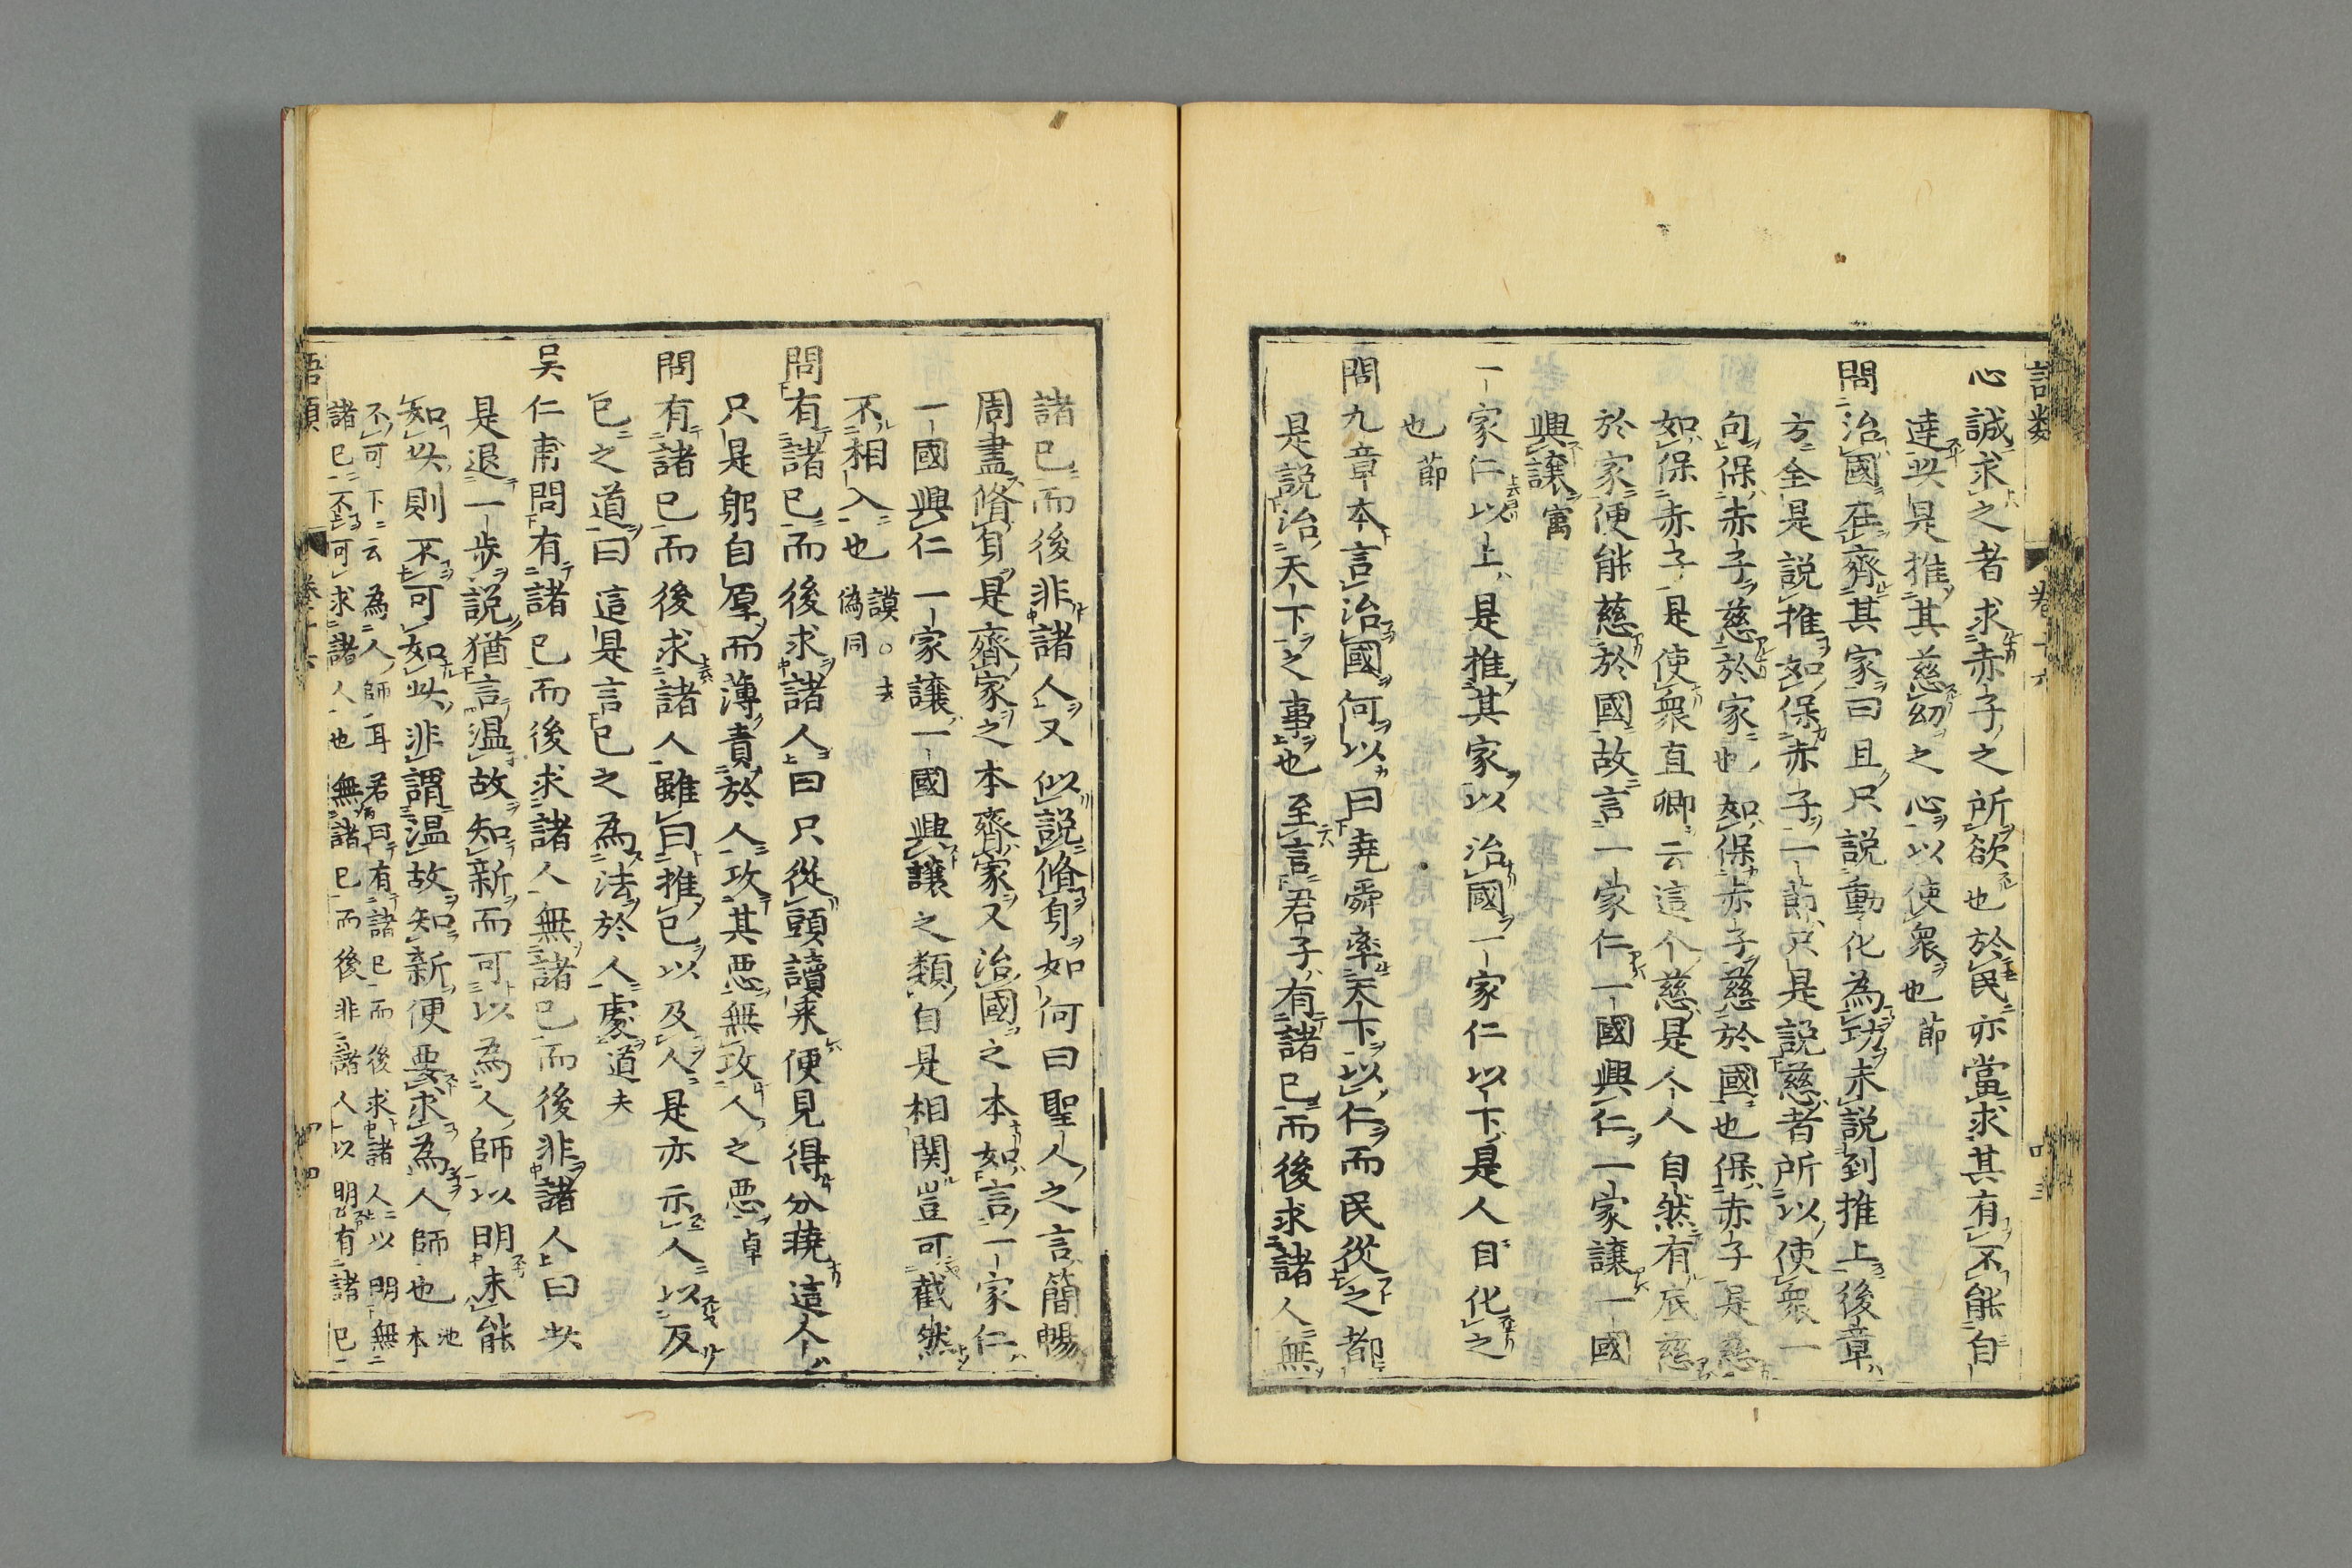 語類 卷十六 四三
心誠求之者求赤子之所欲也於民亦當求其有不能自
達此是推其慈幼之心以使衆也節
問治國在齊其家曰且只說動化為功未說到推上後章
方全是說推如保赤子一節只是說慈者所以使衆一
句保赤子慈於家也如保赤子慈於國也保赤子是慈
如保赤子是使衆直卿云這个慈是人人自然有底慈
於家便能慈於國故言一家仁一國興仁一家讓一國
興讓㝢
一家仁以上是推其家以治國一家仁以下是人自化之
也節
問九章本言治國何以曰堯舜率天下以仁而民從之都
是説治天下之事也至言君子有諸已而後求諸人無
諸已而後非諸人又似説脩身如何曰聖人之言簡暢
周盡脩身是齊家之本齊家又治國之本如言一家仁
一國興仁一家讓一國興讓之類自是相関豈可截然
不相入也謨○去偽同
問有諸已而後求諸人曰只從頭讀來便見得分曉這个
只是躬自厚而薄責於人攻其惡無攻人之惡卓
問有諸已而後求諸人雖曰推已以及人是亦示人以反
已之道曰這是言已之為法於人處道夫
吴仁甫問有諸已而後求諸人無諸已而後非諸人曰此
是退一步説猶言温故知新而可以為人師以明未能
如此則不可如此非謂温故知新便要求為人師也池本
不可下云為人師耳若曰有諸已而後求諸人以明無
諸已不可求諸人也無諸已而後非諸人以明有諸已
語類 卷十六 四四